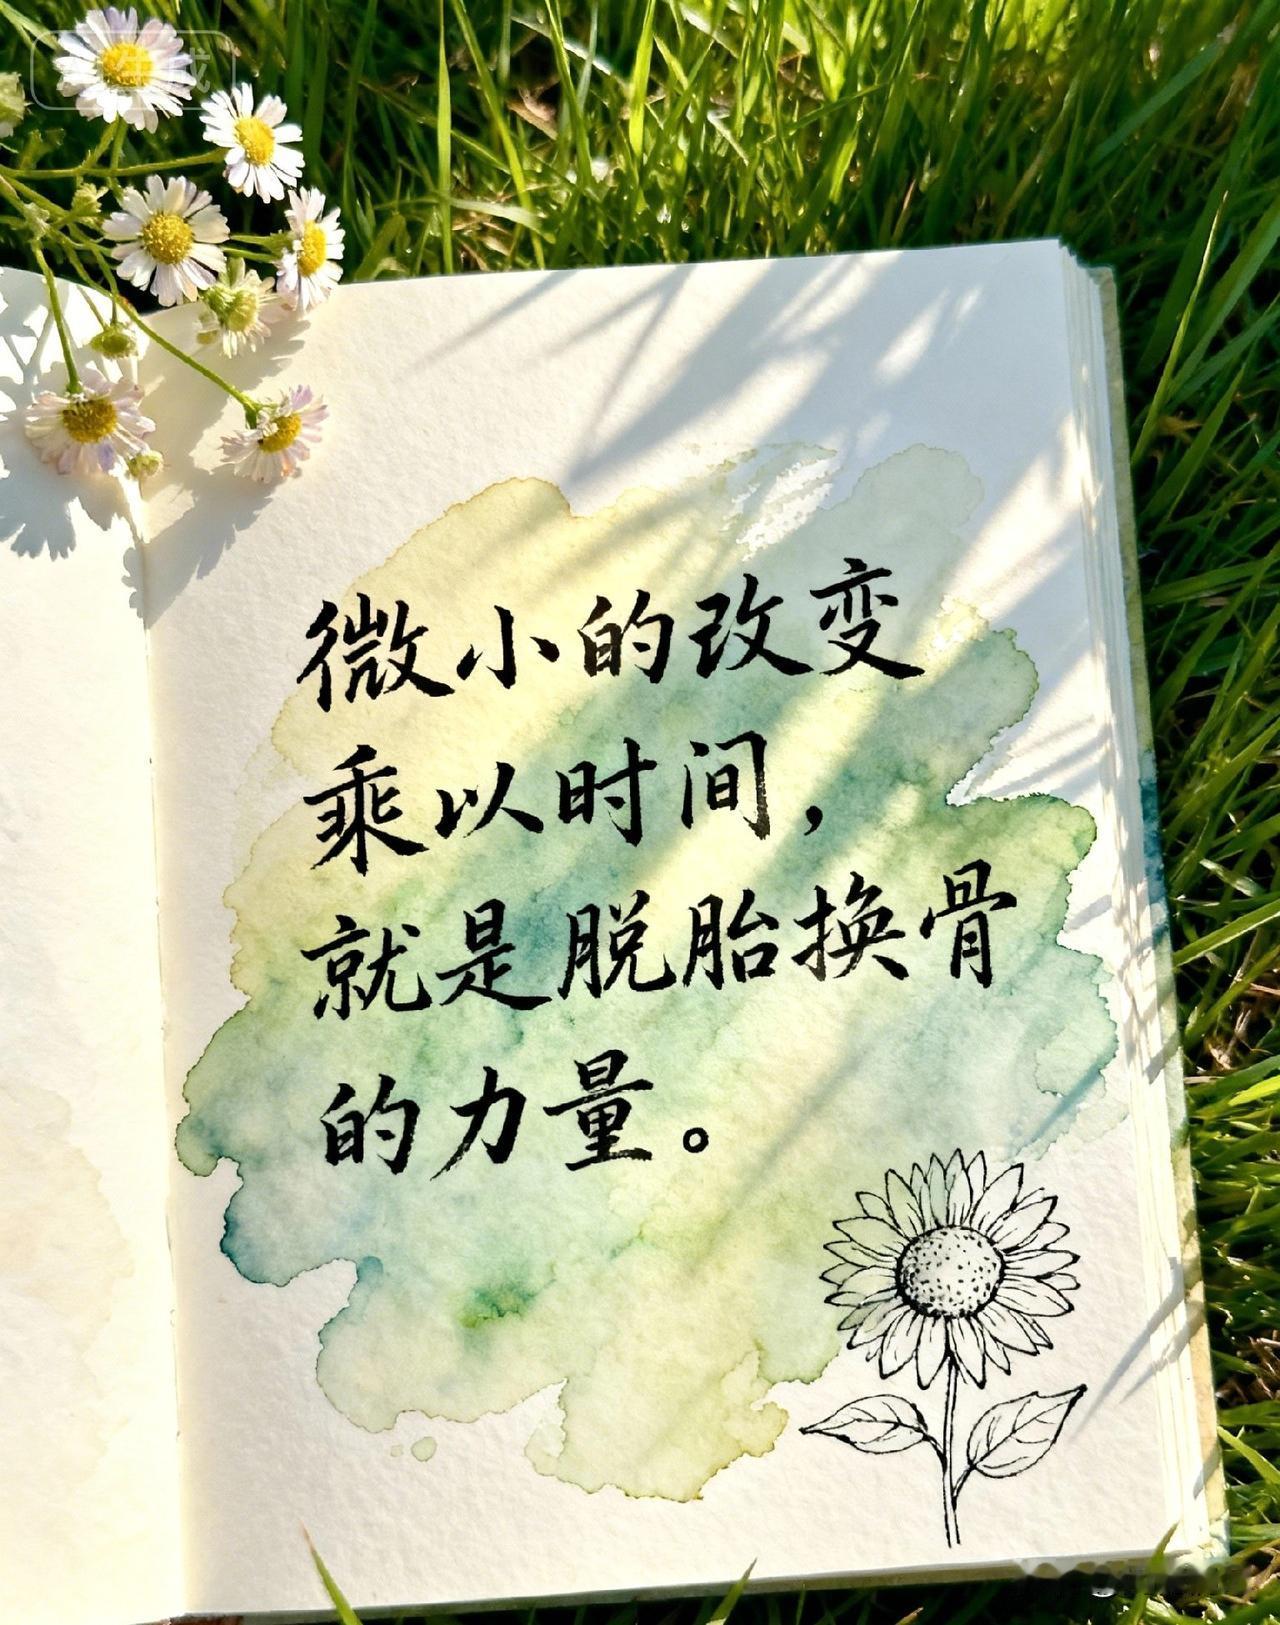 微小的改变
乘以时间，
就是脱胎换骨
的力量。